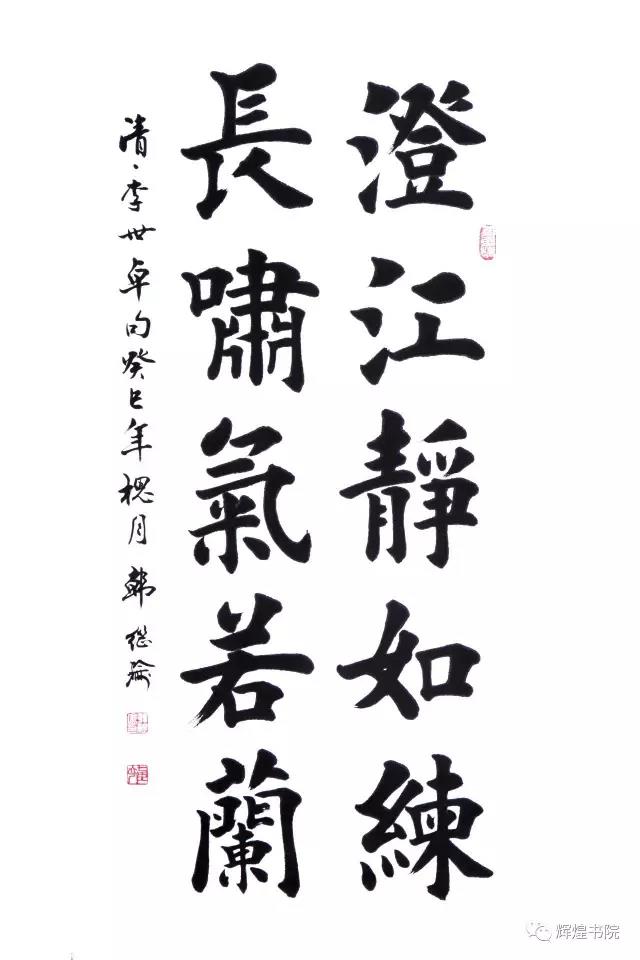 澄江靜如練
長嘯氣若蘭
清、李世卓句癸巳年槐月 韩继瑜
辉煌书院